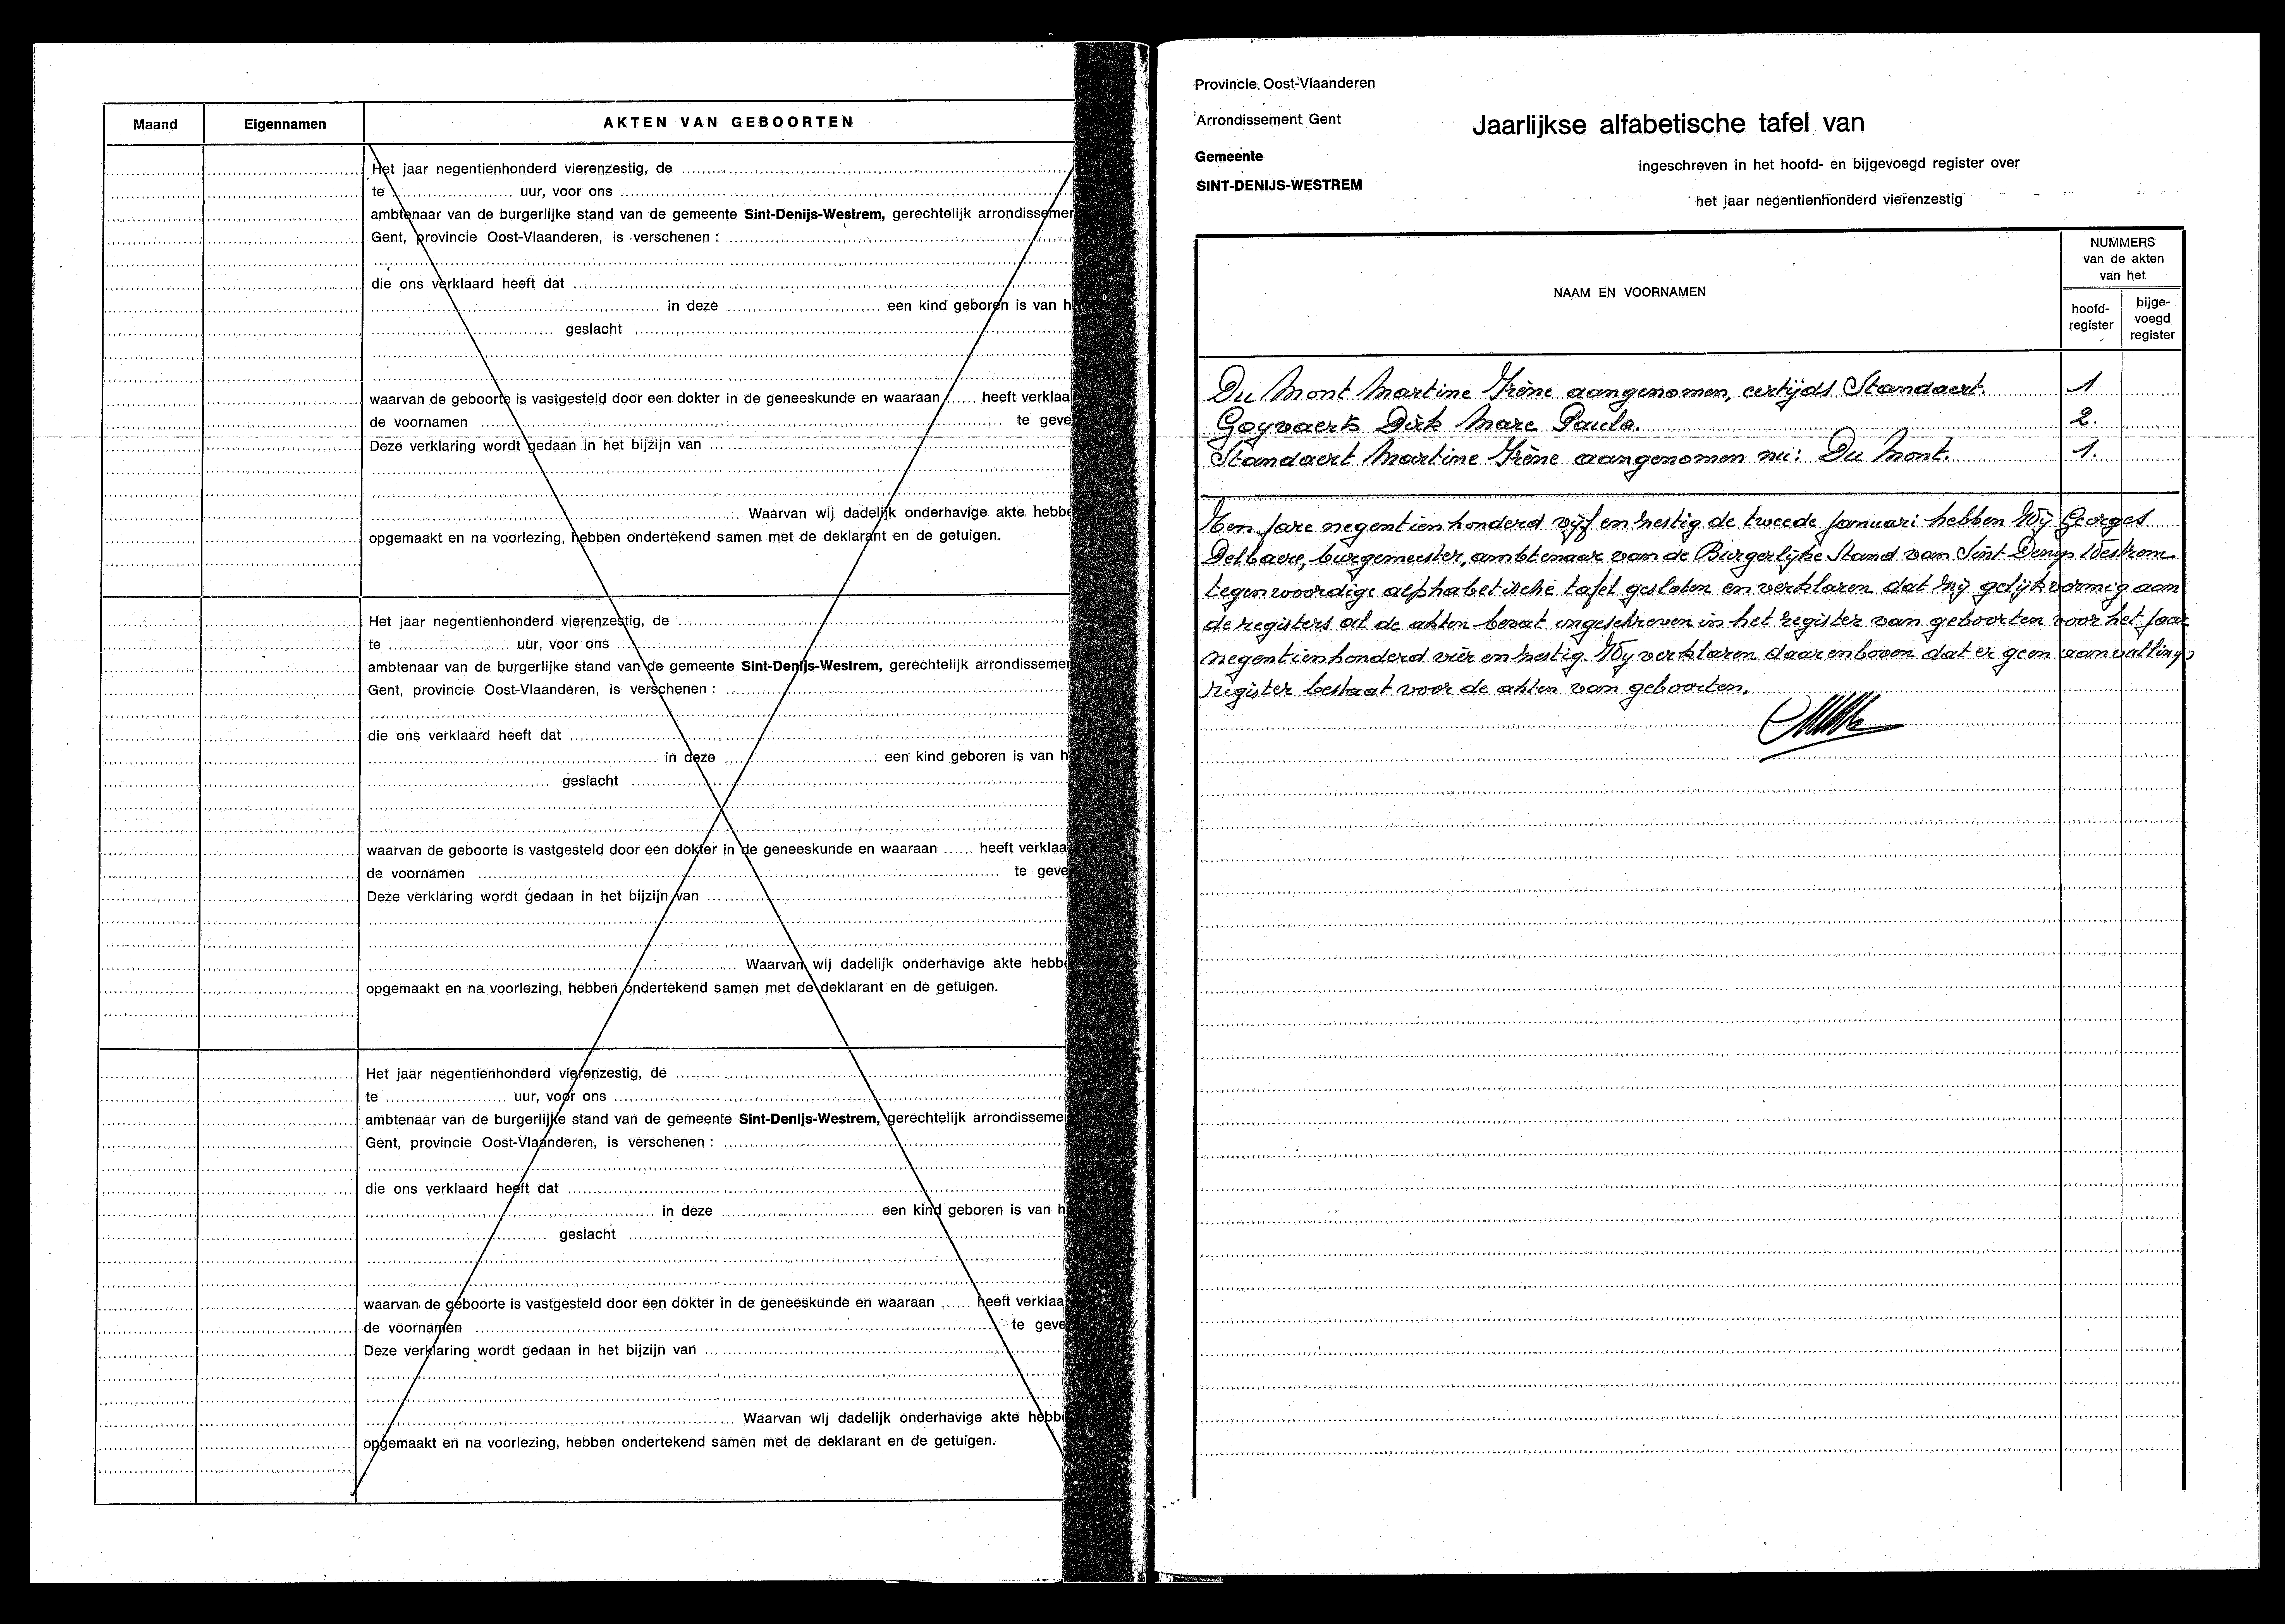 Maand Eigennamen AKTEN VAN GEBOORTEN
Het jaar negentienhonderd vierenzestig, de
te uur, voor ons
ambtenaar van de burgerlijke stand van de gemeente Sint-Denijs-Westrem, gerechtelijk arrondissemen
Gent, provincie Oost-Vlaanderen, is verschenen :
die ons verklaard heeft dat
in deze een kind geboren is van h
geslacht
waarvan de geboorte is vastgesteld door een dokter in de geneeskunde en waaraan heeft verklaa
de voornamen te geve
Deze verklaring wordt gedaan in het bijzijn van
Waarvan wij dadelijk onderhavige akte hebbe
opgemaakt en na voorlezing, hebben ondertekend samen met de deklarant en de getuigen.
Het jaar negentienhonderd vierenzestig, de
te uur, voor ons
ambtenaar van de burgerlijke stand van de gemeente Sint-Denijs-Westrem, gerechtelijk arrondissemen
Gent, provincie Oost-Vlaanderen, is verschenen :
die ons verklaard heeft dat
in deze een kind geboren is van h
geslacht
waarvan de geboorte is vastgesteld door een dokter in de geneeskunde en waaraan heeft verklaa
de voornamen te geve
Deze verklaring wordt gedaan in het bijzijn van
Waarvan wij dadelijk onderhavige akte hebbe
opgemaakt en na voorlezing, hebben ondertekend samen met de deklarant en de getuigen.
Het jaar negentienhonderd vierenzestig, de
te uur, voor ons
ambtenaar van de burgerlijke stand van de gemeente Sint-Denijs-Westrem, gerechtelijk arrondisseme
Gent, provincie Oost-Vlaanderen, is verschenen :
die ons verklaard heeft dat
in deze een kind geboren is van h
geslacht
waarvan de geboorte is vastgesteld door een dokter in de geneeskunde en waaraan heeft verklaa
de voornamen te geve
Deze verklaring wordt gedaan in het bijzijn van
Waarvan wij dadelijk onderhavige akte hebbe
opgemaakt en na voorlezing, hebben ondertekend samen met de deklarant en de getuigen.
Provincie Oost-Vlaanderen
Arrondissement Gent
Jaarlijkse alfabetische tafel van
Gemeente
SINT-DENIJS-WESTREM
ingeschreven in het hoofd- en bijgevoegd register over
het jaar negentienhonderd vierenzestig
NAAM EN VOORNAMEN
NUMMERS
van de akten
van het
hoofd-
register
bijge-
voegd
register
Du Mont Martine Irène aangenomen, eertijds Standaert. 1
Goyvaerts Dirk Marc Paula. 2.
Standaert Martine Irène aangenomen nu: Du Mont. 1.
Ten jare negentienhonderd vijf en zestig de tweede Januari hebben Wij Georges
Delbaere, burgemeester, ambtenaar van de Burgerlijke Stand van Sint Denijs Westrem
tegenwoordige alphabetische tafel gesloten en verklaren dat zij gelijkvormig aan
de registers al de akten bevat ingeschreven in het register van geboorten voor het jaar
negentienhonderd vier en zestig. Wij verklaren daarenboven dat er geen aanvullings
register bestaat voor de akten van geboorten.